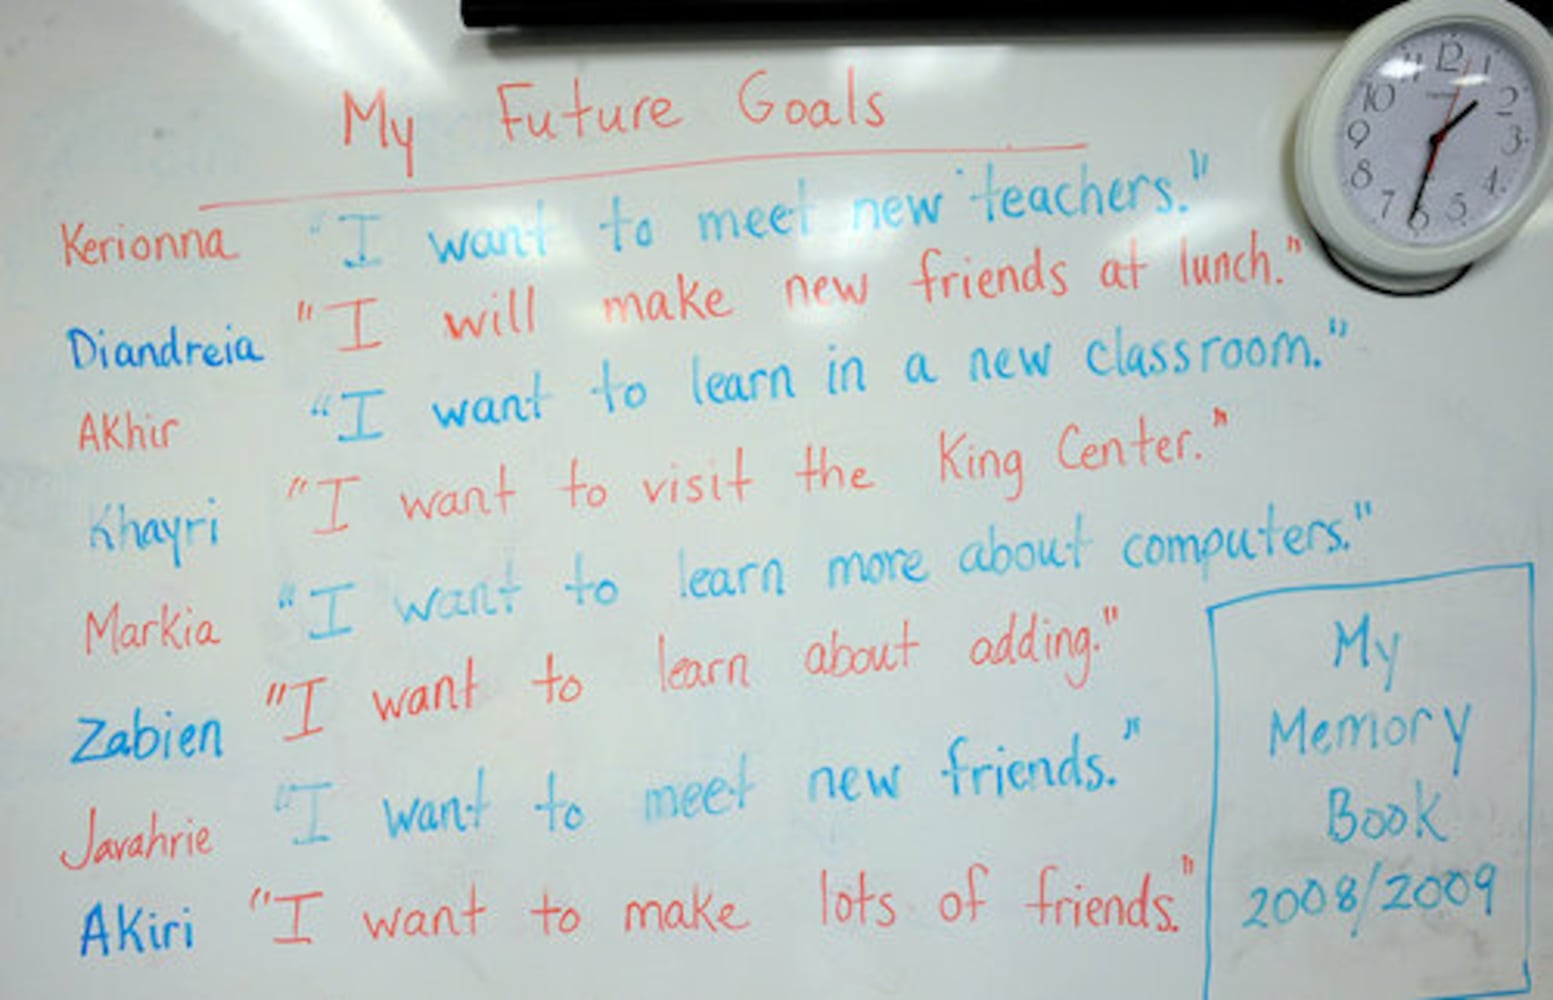 My Future Goals
Kerionna "I want to meet new teachers."
Diandreia "I will make new friends at lunch."
AKhir "I want to learn in a new classroom."
Khayri "I want to visit the King Center."
Markia "I want to learn more about computers."
Zabien "I want to learn about adding."
Javahrie "I want to meet new friends."
AKiri "I want to make lots of friends."
My
Memory
Book
2008/2009
12
1
2
3
4
5
6
7
8
9
10
11